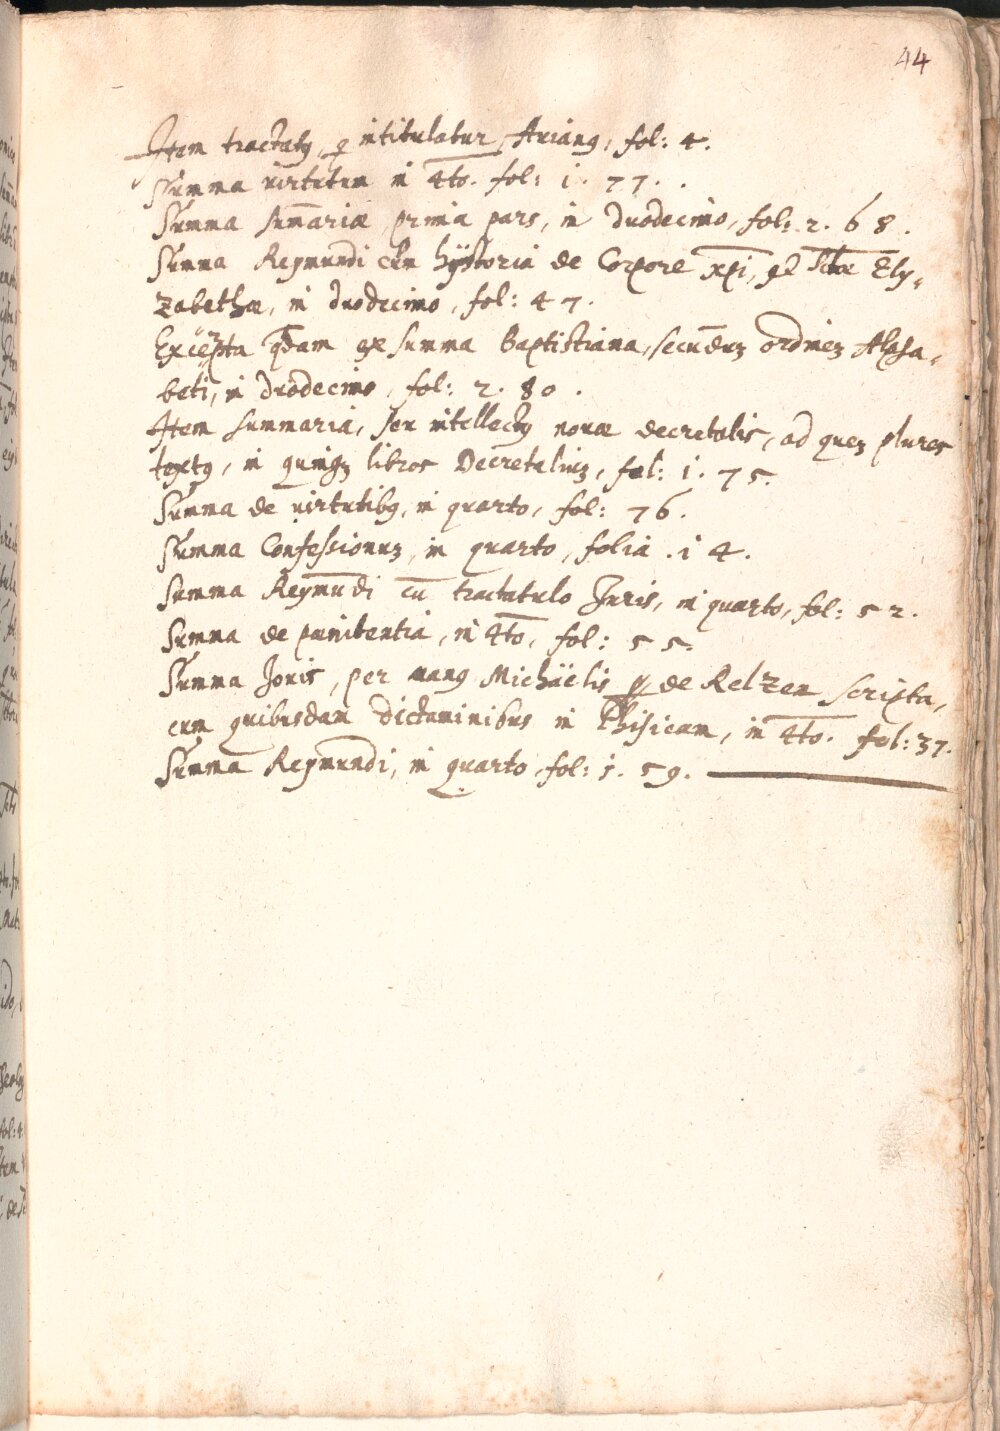 44
Item tractatꝰ, q̱ intitulatur Arianꝰ, fol: 4.
Summa virtutum in 4to. fol: i. 77.
Summa sum̄ariæ prima pars, in duodecimo, fol: 2. 68.
Summa Reymundi cŭm hÿstoria de Corpore xp̄i, et s̄ctæ Ely-
zabethæ, in duodecimo, fol: 47.
Excerpta q̄dam ex summa Baptistiana, secūduꝫ ordineꝫ Alpha-
beti, in dŭodecimo, fol: 2. 80.
Item summaria, seu intellectꝰ novæ decretalis, ad queꝫ plures
textꝰ, in quinqꝫ libros Decretaliuꝫ, fol: i. 75.
Summa de virtutibꝰ, in quarto, fol: 76.
Summa Confessionuꝫ, in quarto, folia. i4.
Summa Reymūdi cū tractatulo Juris, in quarto, fol: 52.
Summa de pænitentia, in 4to, fol: 55.
Summa Jovis, per manꝰ Michäelis p̱ de Relzen scripta,
cum quibusdam dictaminibus in Phisicam, in 4to. fol: 37.
Summa Reymundi, in quarto, fol: i. 59.